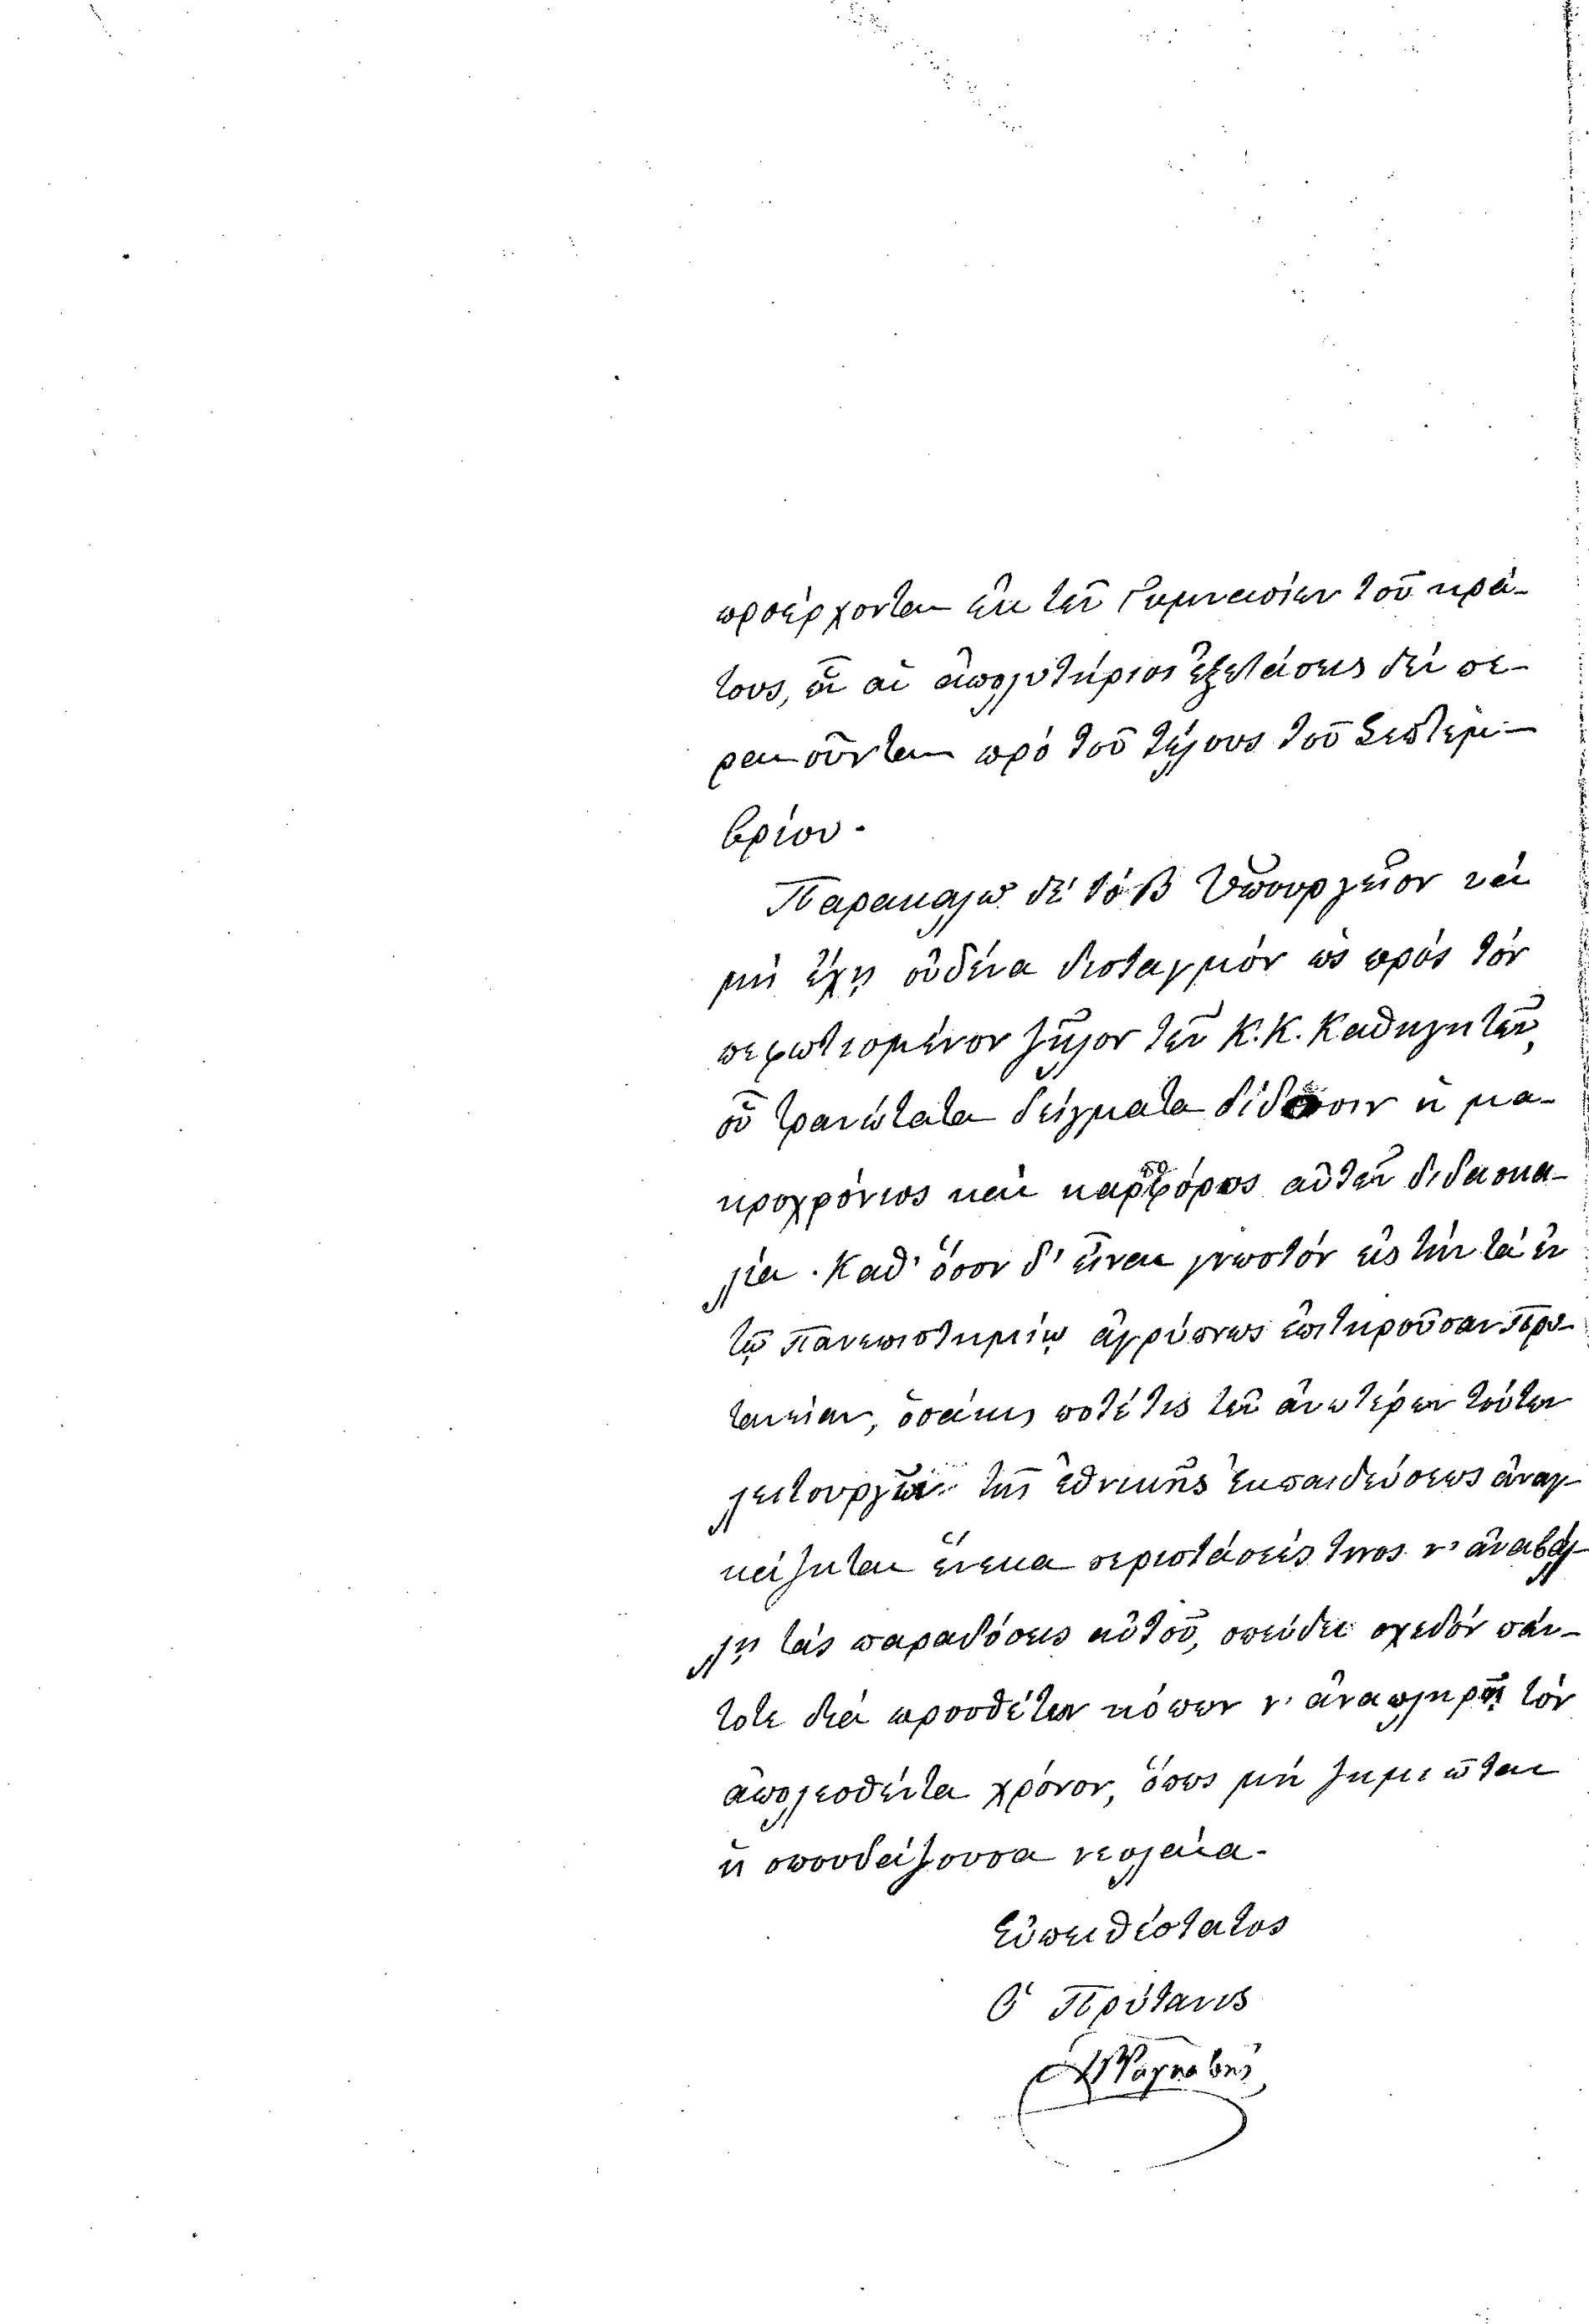 προέρχονται ἐκ τῶν Γυμνασίων τοῦ κρά-
τους, ὧν αἱ ἀπολυτήριοι ἐξετάσεις δέν πε-
ραιοῦνται πρό τοῦ τέλους τοῦ Σεπτεμ-
βρίου.
Παρακαλῶ δέ τό Β Ὑπουργεῖον νά
μή ἔχῃ οὐδένα δισταγμόν ὡς πρός τόν
πεφωτισμένον ζῆλον τῶν Κ.Κ. Καθηγητῶν,
οὗ τρανώτατα δείγματα δίδουσιν ἡ μα-
κροχρόνιος καί καρποφόρος αὐτῶν διδασκα-
λία. Καθ' ὅσον δ' εἶναι γνωστόν εἰς τήν τά ἐν
τῷ Πανεπιστημίῳ ἀγρύπνως ἐπιτηροῦσαν Πρυ-
τανείαν, ὁσάκις ποτέ τις τῶν ἀνωτέρων τούτων
λειτουργῶν τῆς ἐθνικῆς ἐκπαιδεύσεως ἀναγ-
κάζηται ἕνεκα περιστάσεώς τινος ν' ἀναβάλ-
λῃ τάς παραδόσεις αὐτοῦ, σπεύδει σχεδόν πάν-
τοτε διά προσθέτων κόπων ν' ἀναπληροῖ τόν
ἀπολεσθέντα χρόνον, ὅπως μή ζημιῶται
ἡ σπουδάζουσα νεολαία.
Εὐπειθέστατος
Ὁ Πρύτανις
ΑΡΡαγκαβῆς